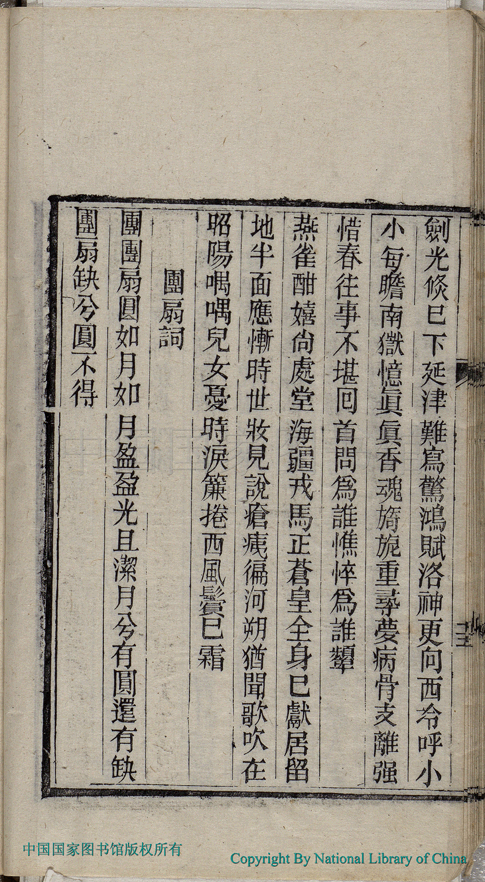 劍光倐已下延津難寫驚鴻賦洛神更向西泠呼小
小每瞻南嶽憶眞眞香魂旖旎重尋夢病骨支離强
惜春往事不堪回首問爲誰憔悴爲誰顰
燕雀酣嬉尙處堂海疆戎馬正蒼皇全身已獻居留
地半面應慚時世妝見說瘡痍徧河朔猶聞歌吹在
昭陽喁喁兒女憂時淚簾捲西風鬢已霜
團扇詞
團團扇圓如月如月盈盈光且潔月兮有圓還有缺
團扇缺兮圓不得
中国国家图书馆版权所有
Copyright By National Library of China